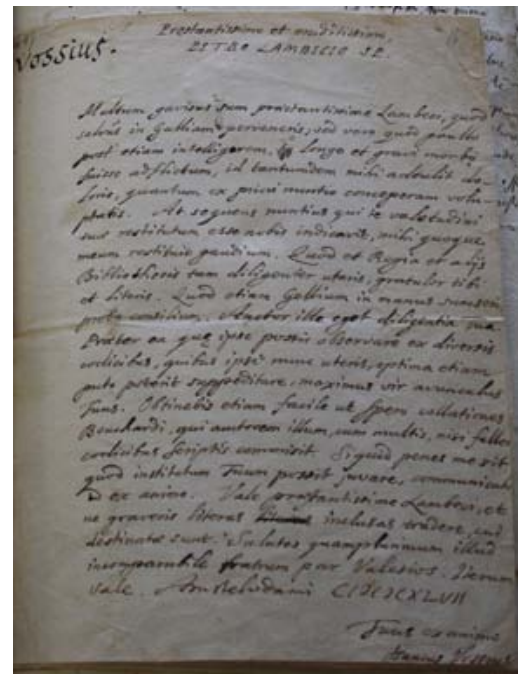 Vossius.
Prestantissimo et eruditissimo
PETRO LAMBECIO S.P.
Multum gavisus sum praestantissime Lambeci, quod
salvus in Galliam perveneris, sed vero quod paullo
post etiam intelligerem, longo et gravi morbo
fuisse adflictum, id tantumdem mihi adtulit do-
loris, quantum ex priori nuntio conceperam volu-
ptatis. At sequens nuntius qui te valetudini
tuae restitutum esse nobis indicavit, mihi quoque
meum restituit gaudium. Quod et Regia et alijs
Bibliothecis tam diligenter uteris, gratulor tibi
et literis. Quod etiam Gellium in manus sumseris
probo consilium. Auctor ille eget diligentia tua
Praeter ea quae ipse possis observare ex diversis
codicibus, quibus ipse nunc uteris, optima etiam
puto poterit suppeditare, maximus vir avunculus
Tuus. Obtinebis etiam facile ut spero collationes
Bouchardi, qui auctorem illum, cum multis, nisi fallor
codicibus scriptis commisit. Siquid penes me sit
quod institutum Tuum possit juvare, communicabo
ex animo. Vale praestantissime Lambeci, et
ne graveris literas inclusas tradere, cui
destinatae sunt. Salutes quamplurimum illud
incomparabile fratrum par Valesios. Iterum
Vale. Amstelodami CIƆIƆCXLVII
Tuus ex animo
Vossius